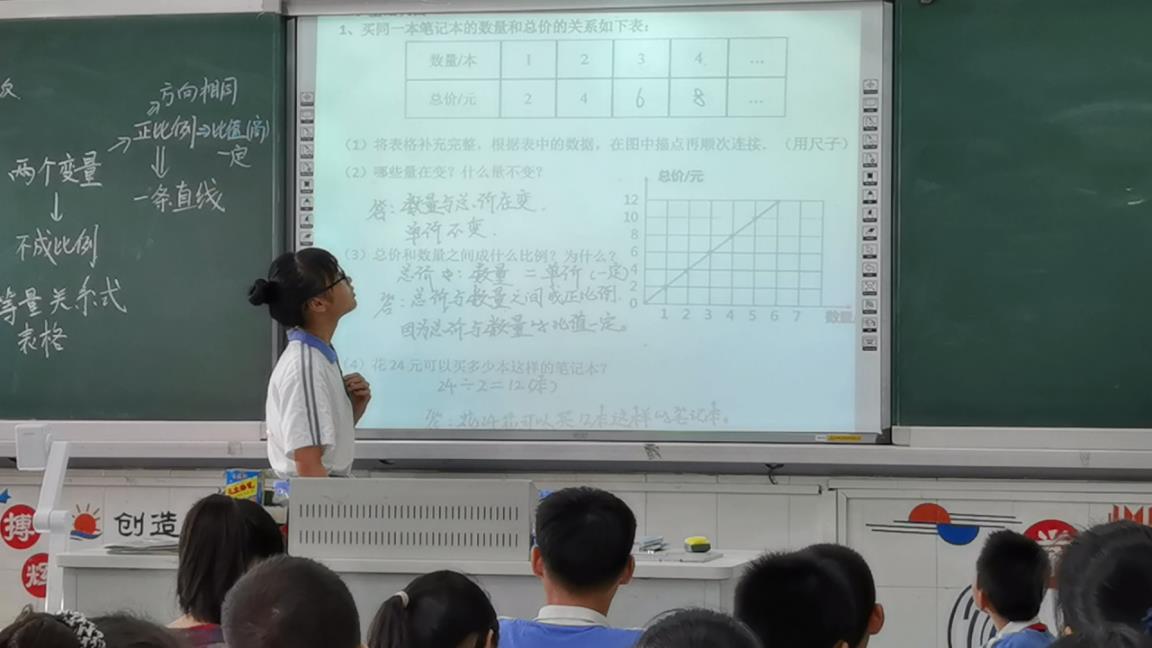 次
方向相同
正比例→比值(商)
一定
两个变量
一条直线
不成比例
等量关系式
表格
1、买同一本笔记本的数量和总价的关系如下表:
数量/本 1 2 3 4 …
总价/元 2 4 6 8 …
(1)将表格补充完整,根据表中的数据,在图中描点再顺次连接.(用尺子)
(2)哪些量在变?什么量不变?
答:数量与总价在变.
单价不变.
总价/元
12
10
8
6
4
2
0
1 2 3 4 5 6 7 数量
(3)总价和数量之间成什么比例?为什么?
总价:数量=单价(一定)
答:总价与数量之间成正比例.
因为总价与数量的比值一定。
(4)花24元可以买多少本这样的笔记本?
24÷2=12(本)
答:花24元可以买12本这样的笔记本。
创造
搏
辉